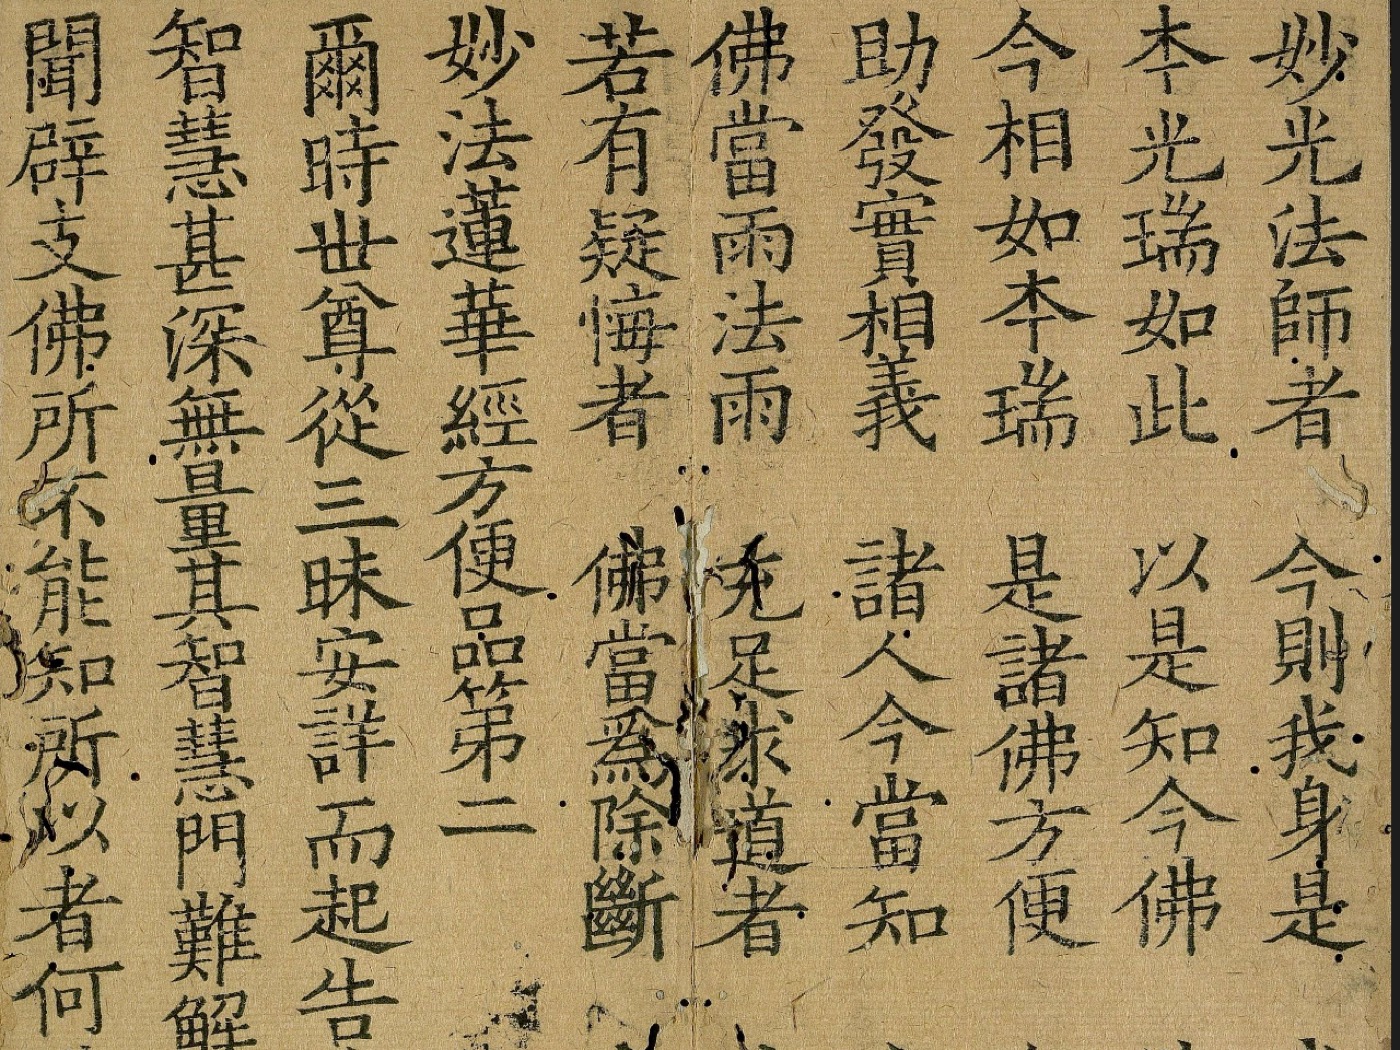 妙光法師者 今則我身是
本光瑞如此 以是知今佛
今相如本瑞 是諸佛方便
助發實相義 諸人今當知
佛當雨法雨 充足求道者
若有疑悔者 佛當爲除斷
妙法蓮華經方便品第二
爾時世尊從三昧安詳而起告
智慧甚深無量其智慧門難解
聞辟支佛所不能知所以者何